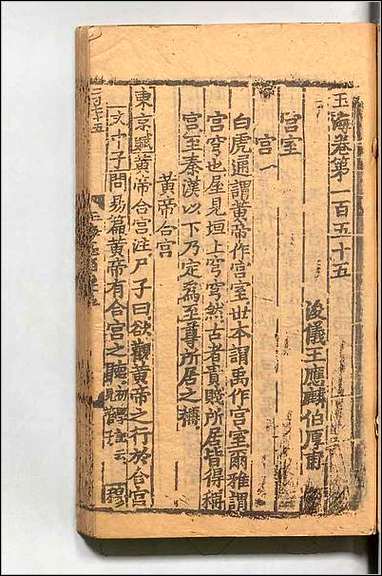 玉海卷第一百五十五
浚儀王應麟伯厚甫
宮室
宮一
白虎通謂黄帝作宮室世本謂禹作宮室爾雅謂
宮穹也屋見垣上穹穹然古者貴賤所居皆得稱
宮至秦漢以下乃定爲至尊所居之稱
黄帝合宮
東京賦黄帝合宮注尸子曰欲觀黄帝之行於合宮
文中子問易篇黄帝有合宮之聽